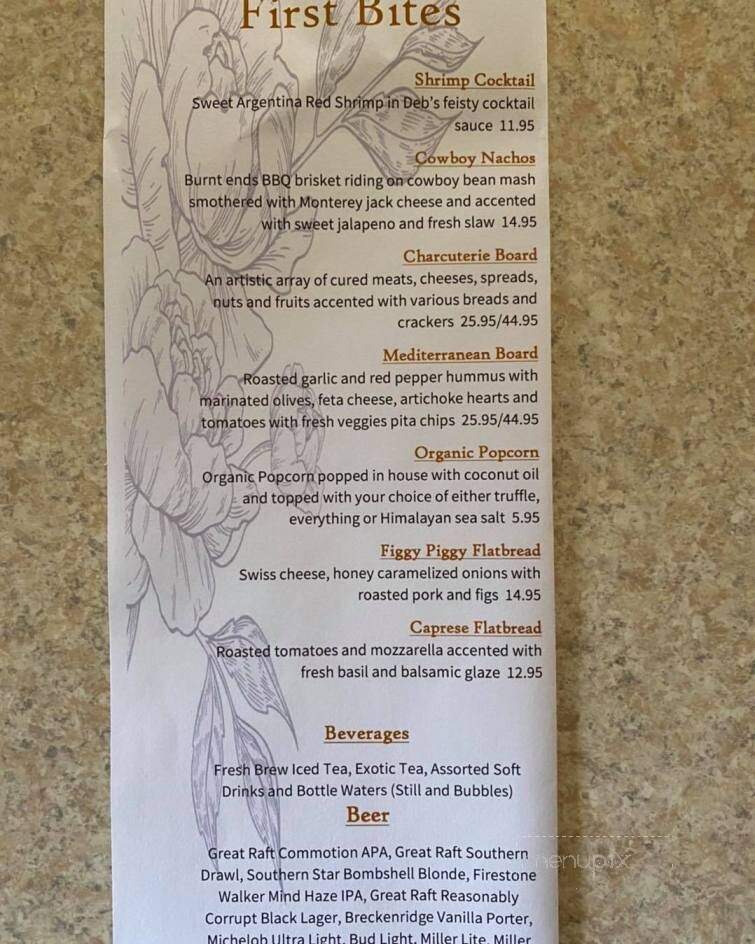 First Bites
Shrimp Cocktail
Sweet Argentina Red Shrimp in Deb's feisty cocktail
sauce 11.95
Cowboy Nachos
Burnt ends BBQ brisket riding on cowboy bean mash
smothered with Monterey jack cheese and accented
with sweet jalapeno and fresh slaw 14.95
Charcuterie Board
An artistic array of cured meats, cheeses, spreads,
nuts and fruits accented with various breads and
crackers 25.95/44.95
Mediterranean Board
Roasted garlic and red pepper hummus with
marinated olives, feta cheese, artichoke hearts and
tomatoes with fresh veggies pita chips 25.95/44.95
Organic Popcorn
Organic Popcorn popped in house with coconut oil
and topped with your choice of either truffle,
everything or Himalayan sea salt 5.95
Figgy Piggy Flatbread
Swiss cheese, honey caramelized onions with
roasted pork and figs 14.95
Caprese Flatbread
Roasted tomatoes and mozzarella accented with
fresh basil and balsamic glaze 12.95
Beverages
Fresh Brew Iced Tea, Exotic Tea, Assorted Soft
Drinks and Bottle Waters (Still and Bubbles)
Beer
Great Raft Commotion APA, Great Raft Southern
Drawl, Southern Star Bombshell Blonde, Firestone
Walker Mind Haze IPA, Great Raft Reasonably
Corrupt Black Lager, Breckenridge Vanilla Porter,
Michelob Ultra Light, Bud Light, Miller Lite, Miller
menupix